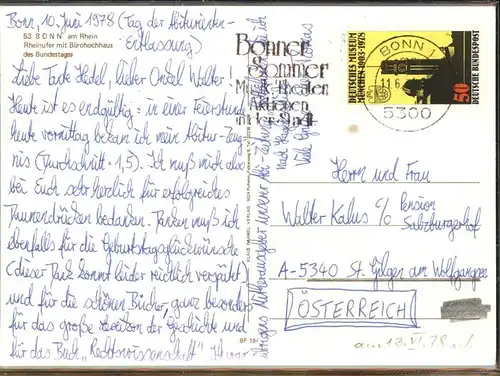 Bonn, 10. Juni 1978 (Tag der Abiturienten-
Entlassung)
53 BONN am Rhein
Rheinufer mit Bürohochhaus
des Bundestages
Liebe Tante Hedel, lieber Onkel Walter!
Heute ist es endgültig: in einer Feierstunde
heute vormittag bekam ich mein Abitur-Zeug-
nis (Durchschnitt: 1,5). Ich muß mich also
bei Euch sehr herzlich für erfolgreiches
Daumendrücken bedanken. Danken muß ich
ebenfalls für die Geburtstagsglückwünsche
(dieser Dank kommt leider reichlich verspätet)
und für die schönen Bücher, ganz besonders
für das große Lexikon der Geschichte und
für das Buch „Rechtswissenschaft". Ich war
übrigens Mitherausgeber unserer Abi-Zeitung
Viele Grüße
Bonner
Sommer
Musik, Theater,
Aktionen
in der Stadt
BONN 1
11.6.
5300
DEUTSCHES MUSEUM
MÜNCHEN 1903-1978
50
DEUTSCHE BUNDESPOST
Herrn und Frau
Walter Kalus c/o Pension
Salzburgerhof
A-5340 St. Gilgen am Wolfgangsee
ÖSTERREICH
am 12.VI.78